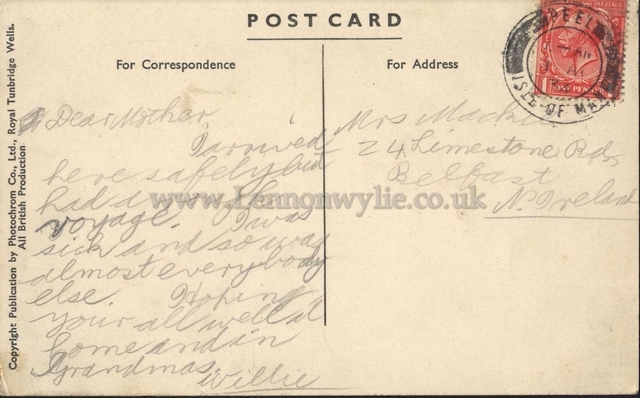 POST CARD
For Correspondence
For Address
Copyright Publication by Photochrom Co., Ltd., Royal Tunbridge Wells.
All British Production
PEEL
ISLE OF MAN
REVENUE
ONE PENNY
Dear Mother,
I arrived
here safely but
had a
voyage. I was
sick and so was
almost everybody
else. Hoping
your all well at
home and in
Grandmas
Willie
Mrs
24 Limestone Rd
Belfast
N. Ireland
www.Lennonwylie.co.uk